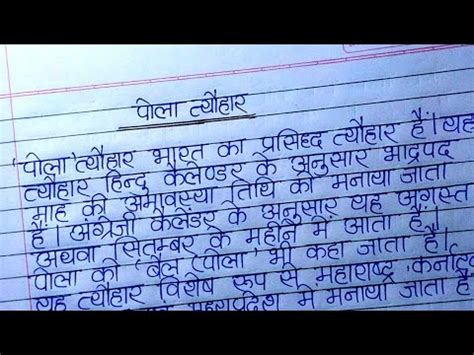 पोला त्यौहार
'पोला' त्यौहार भारत का प्रसिध्द त्यौहार हैं। यह
त्यौहार हिन्दु कैलेण्डर के अनुसार भाद्रपद
माह की अमावस्या तिथि को मनाया जाता
हैं। अंग्रेजी कैलेंडर के अनुसार यह अगस्त
अथवा सितम्बर के महीने में आता हैं।
पोला को 'बैल पोला' भी कहा जाता हैं।
यह त्यौहार विशेष रूप से महाराष्ट्र,
में मनाया जाता हैं